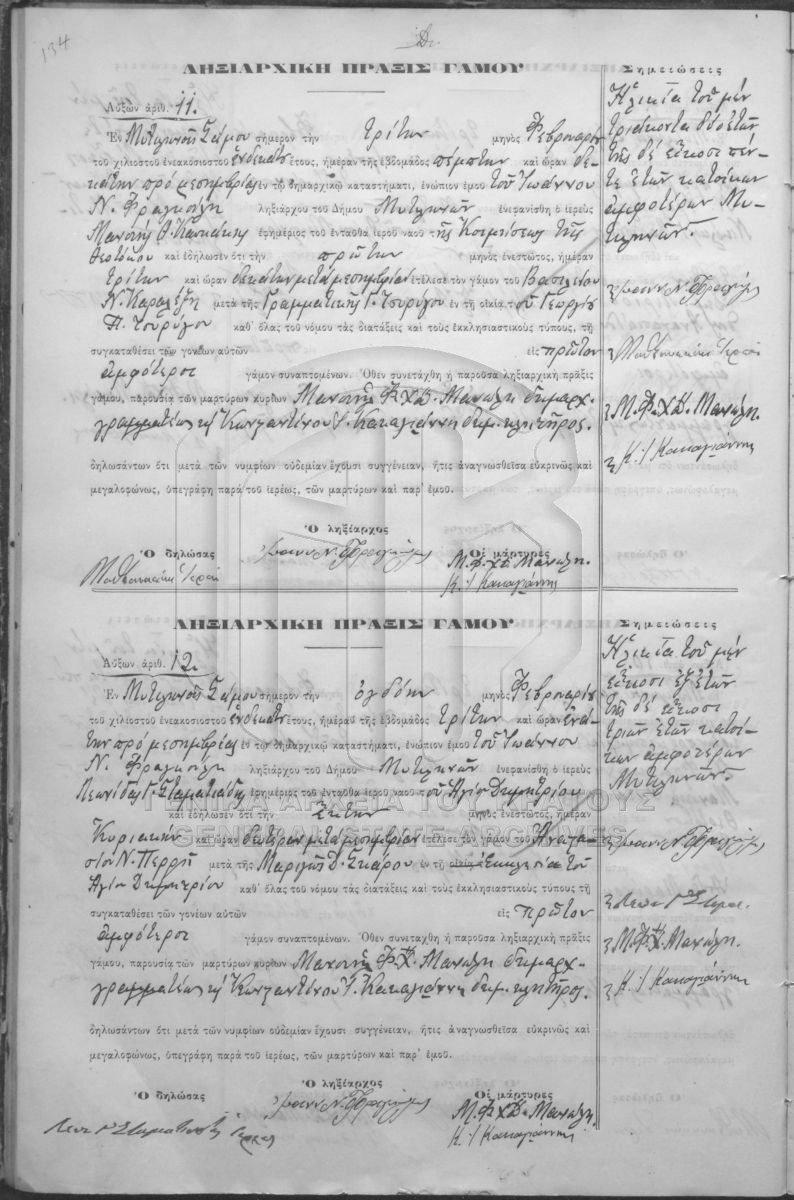 134
ΛΗΞΙΑΡΧΙΚΗ ΠΡΑΞΙΣ ΓΑΜΟΥ
Αὔξων ἀριθ. 11.
Ἐν Μυτιληνιοῖς Σάμου σήμερον τὴν τρίτην μηνὸς Φεβρουαρίου
τοῦ χιλιοστοῦ ἐνεακοσιοστοῦ ἑνδεκάτου ἔτους, ἡμέραν τῆς ἑβδομάδος πέμπτην καὶ ὥραν δε-
κάτην πρὸ μεσημβρίας ἐν τῷ δημαρχικῷ καταστήματι, ἐνώπιον ἐμοῦ τοῦ Ἰωάννου
Ν. ληξιάρχου τοῦ Δήμου ἐνεφανίσθη ὁ ἱερεὺς
ἐφημέριος τοῦ ἐνταῦθα ἱεροῦ ναοῦ τῆς Κοιμήσεως τῆς
Θεοτόκου καὶ ἐδήλωσεν ὅτι τὴν πρώτην μηνὸς ἐνεστῶτος, ἡμέραν
τρίτην καὶ ὥραν δεκάτην μετὰ μεσημβρίαν ἐτέλεσε τὸν γάμον τοῦ Βασιλείου
Ν. μετὰ τῆς Γραμματικῆς Γ. Τσούργου ἐν τῇ οἰκίᾳ τοῦ Γεωργίου
Π. Τσούργου καθ᾽ ὅλας τοῦ νόμου τὰς διατάξεις καὶ τοὺς ἐκκλησιαστικοὺς τύπους, τῇ
συγκαταθέσει τῶν γονέων αὐτῶν εἰς πρῶτον
ἀμφότεροι γάμον συναπτομένων. Ὅθεν συνετάχθη ἡ παροῦσα ληξιαρχικὴ πρᾶξις
γάμου, παρουσίᾳ τῶν μαρτύρων κυρίων Μανουὴλ Φ. Χ̅Δ̅. Μανώλη δημαρχ.
γραμματέως καὶ Κωνσταντίνου Ι. Κακαγιάννη δημ. κλητῆρος.
δηλωσάντων ὅτι μετὰ τῶν νυμφίων οὐδεμίαν ἔχουσι συγγένειαν, ἥτις ἀναγνωσθεῖσα εὐκρινῶς καὶ
μεγαλοφώνως, ὑπεγράφη παρὰ τοῦ ἱερέως, τῶν μαρτύρων καὶ παρ᾽ ἐμοῦ.
Ὁ δηλώσας
Ὁ ληξίαρχος
Οἱ μάρτυρες
Κ. Ι. Κακαγιάννης
Σημειώσεις
Ἡλικία τοῦ μὲν
τριάκοντα δύο ἐτῶν
τῆς δὲ εἴκοσι πέν-
τε ἐτῶν κατοίκων
ἀμφοτέρων Μυ-
τιληνιῶν.
Κ. Ι. Κακαγιάννης
ΛΗΞΙΑΡΧΙΚΗ ΠΡΑΞΙΣ ΓΑΜΟΥ
Αὔξων ἀριθ. 12.
Ἐν Μυτιληνιοῖς Σάμου σήμερον τὴν ὀγδόην μηνὸς Φεβρουαρίου
τοῦ χιλιοστοῦ ἐνεακοσιοστοῦ ἑνδεκάτου ἔτους, ἡμέραν τῆς ἑβδομάδος τρίτην καὶ ὥραν ἐνά-
την πρὸ μεσημβρίας ἐν τῷ δημαρχικῷ καταστήματι, ἐνώπιον ἐμοῦ τοῦ Ἰωάννου
Ν. ληξιάρχου τοῦ Δήμου ἐνεφανίσθη ὁ ἱερεὺς
Λεωνίδας Γ. Σταματιάδης ἐφημέριος τοῦ ἐνταῦθα ἱεροῦ ναοῦ τοῦ Ἁγίου Δημητρίου
καὶ ἐδήλωσεν ὅτι τὴν ἕκτην μηνὸς ἐνεστῶτος, ἡμέραν
Κυριακὴν καὶ ὥραν δευτέραν μετὰ μεσημβρίαν ἐτέλεσε τὸν γάμον τοῦ Ἀναστα-
σίου Ν. Περρῆ μετὰ τῆς Μαριγῶς Δ. Σκάρου ἐν τῇ ἐκκλησίᾳ τοῦ
Ἁγίου Δημητρίου καθ᾽ ὅλας τοῦ νόμου τὰς διατάξεις καὶ τοὺς ἐκκλησιαστικοὺς τύπους τῇ
συγκαταθέσει τῶν γονέων αὐτῶν εἰς πρῶτον
ἀμφότεροι γάμον συναπτομένων. Ὅθεν συνεταχθη ἡ παροῦσα ληξιαρχικὴ πρᾶξις
γάμου, παρουσίᾳ τῶν μαρτύρων κυρίων Μανουὴλ Φ. Χ̅Δ̅. Μανώλη δημαρχ-
γραμματέως καὶ Κωνσταντίνου Ι. Κακαγιάννη δημ. κλητῆρος.
δηλωσάντων ὅτι μετὰ τῶν νυμφίων οὐδεμίαν ἔχουσι συγγένειαν, ἥτις ἀναγνωσθεῖσα εὐκρινῶς καὶ
μεγαλοφώνως, ὑπεγράφη παρὰ τοῦ ἱερέως, τῶν μαρτύρων καὶ παρ᾽ ἐμοῦ.
Ὁ δηλώσας
Ὁ ληξίαρχος
Οἱ μάρτυρες
Κ. Ι. Κακαγιάννης
Σημειώσεις
Ἡλικία τοῦ μὲν
εἴκοσι ἓξ ἐτῶν
τῆς δὲ εἴκοσι
τριῶν ἐτῶν κατοί-
κων ἀμφοτέρων
Μυτιληνιῶν.
Κ. Ι. Κακαγιάννης
ΓΕΝΙΚΑ ΑΡΧΕΙΑ ΤΟΥ ΚΡΑΤΟΥΣ
GENERAL STATE ARCHIVES